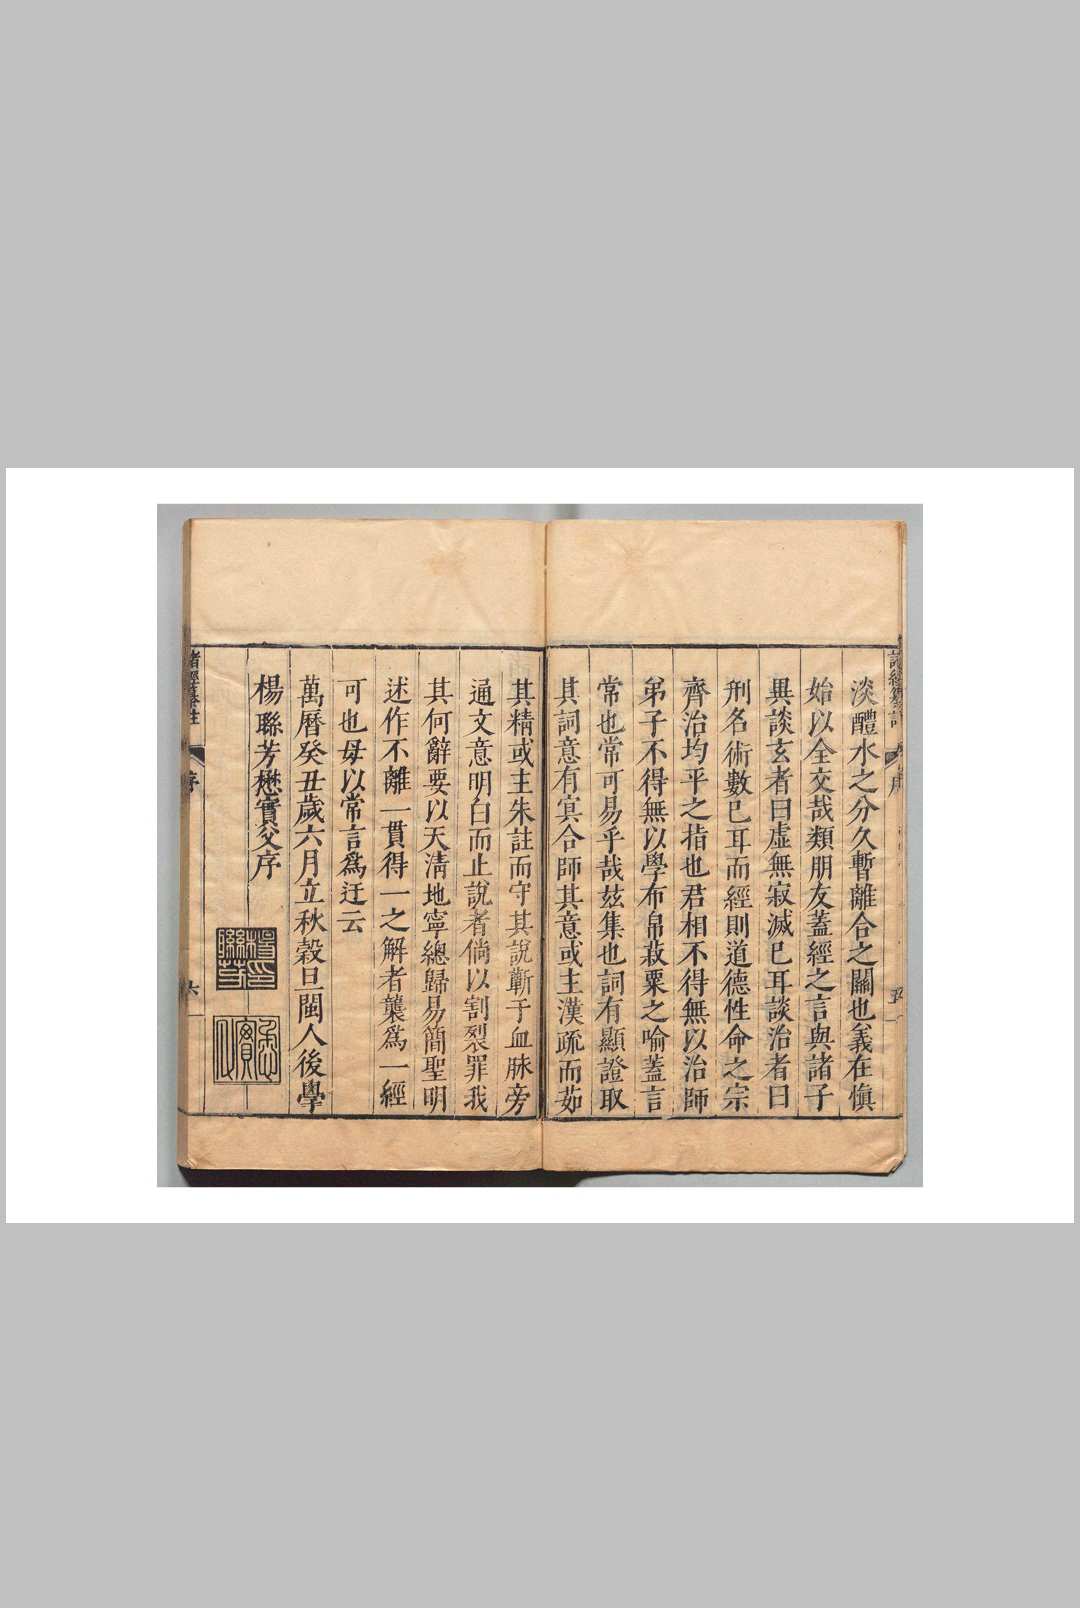 淡醴水之分久暫離合之關也義在愼
始以全交哉類朋友蓋經之言與諸子
異談玄者曰虛無寂滅已耳談治者曰
刑名術數已耳而經則道德性命之宗
齊治均平之指也君相不得無以治師
弟子不得無以學布帛菽粟之喻蓋言
常也常可易乎哉玆集也詞有顯證取
其詞意有㝠合師其意或主漢疏而茹
其精或主朱註而守其說蘄于血脉旁
通文意明白而止說者倘以割裂罪我
其何辭要以天淸地寧總歸易簡聖明
述作不離一貫得一之解者襲爲一經
可也毋以常言爲迂云
萬曆癸丑歲六月立秋穀旦閩人後學
楊聯芳懋實父序
序
六
諸經纂註
序
五